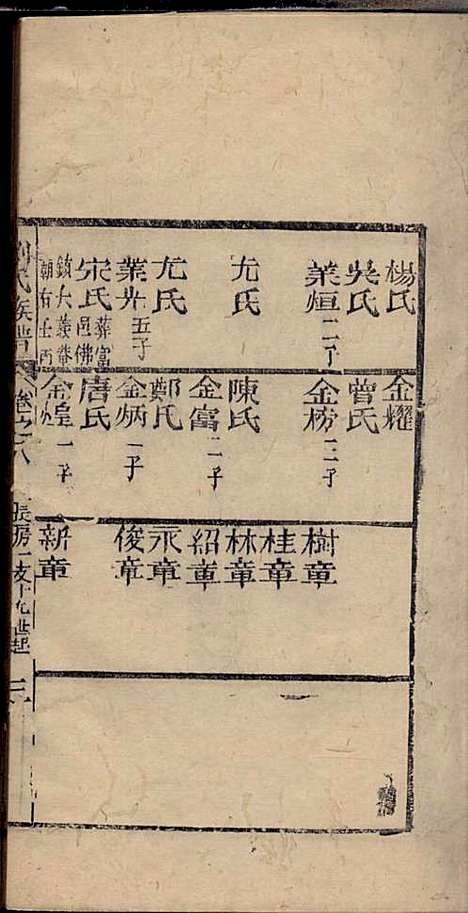 楊氏
吳氏
業烜 二子
尤氏
尤氏
業光 五子
宋氏 葬富邑佛
鎮大義
朝有壬丙
金耀
曾氏
金榜 三子
陳氏
金富 二子
鄭氏
金炳 一子
唐氏
金煌 一子
樹章
桂章
林章
紹章
永章
俊章
新章
氏族譜
卷之八
長房一支十九世起
三